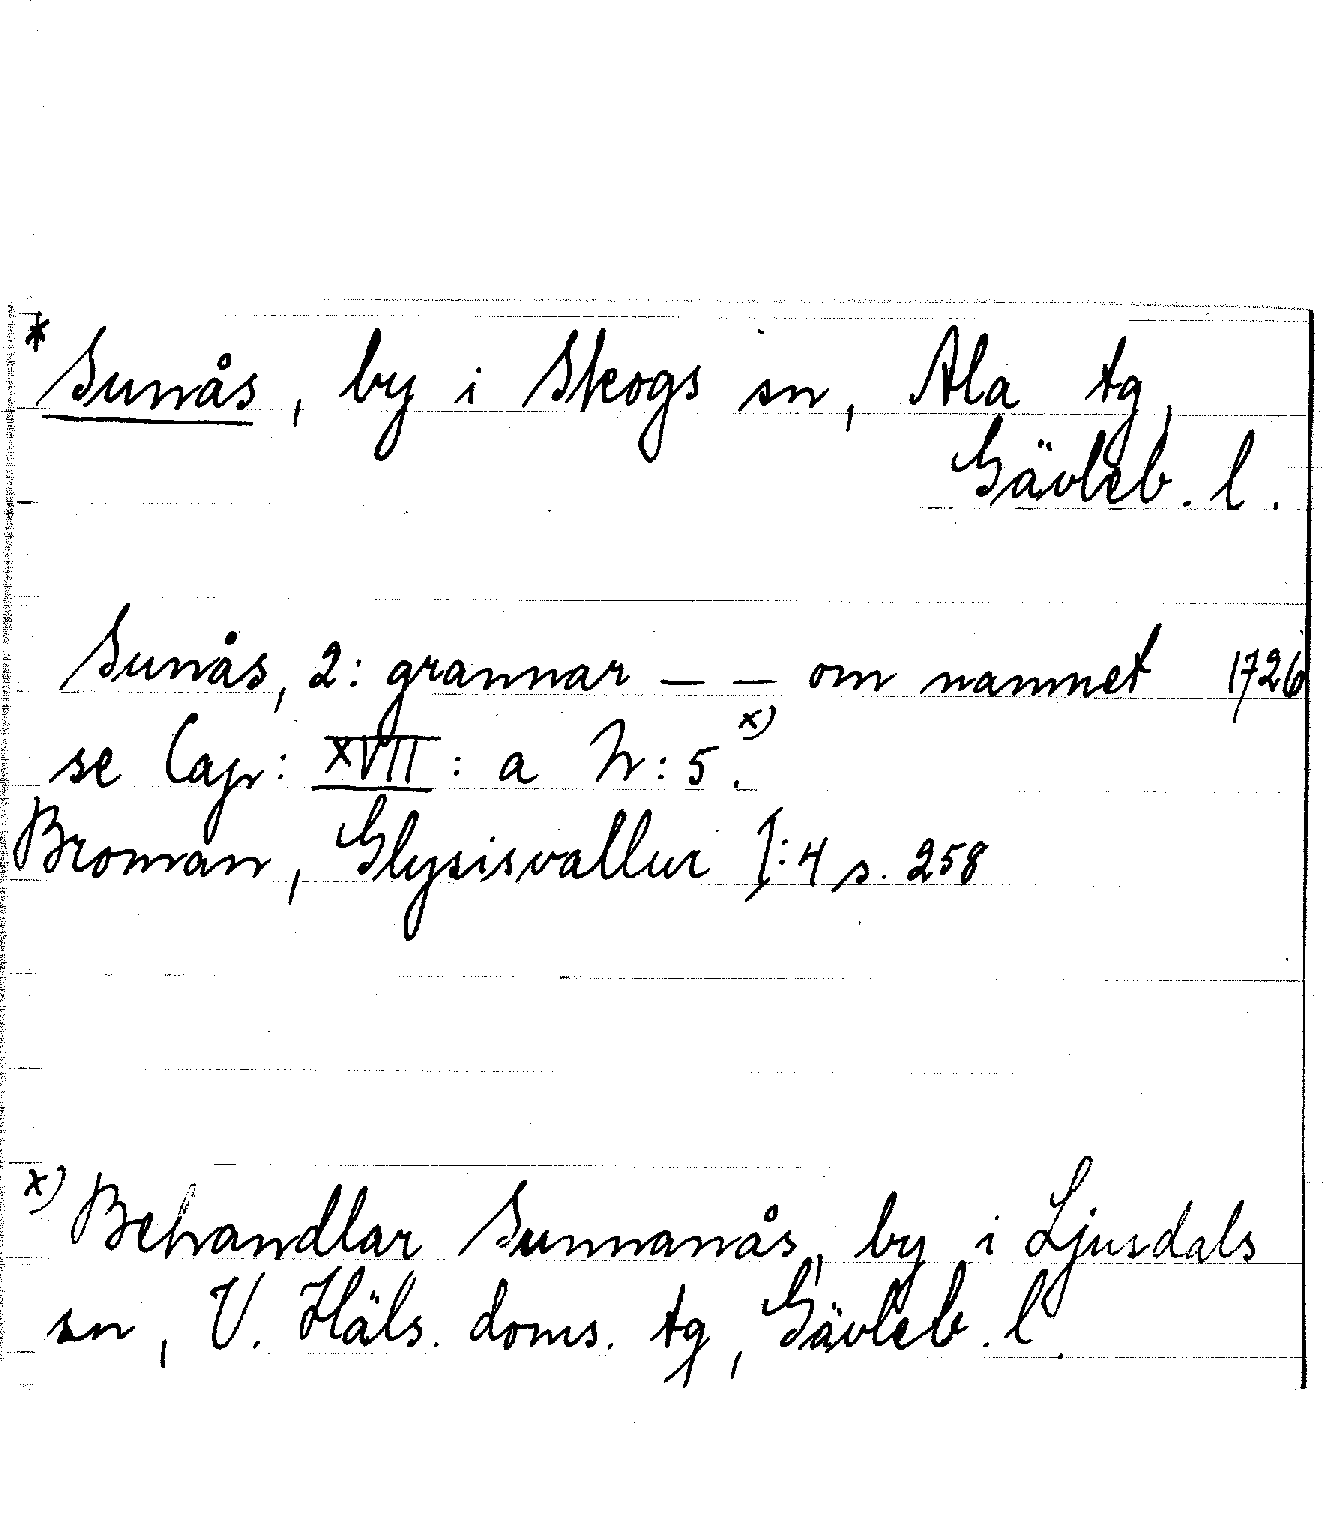 * Sunås, by i Skogs sn, Ala tg,
Gävleb. l.
Sunås, 2: grannar — — om namnet 1726
se Cap: XVII: a N: 5. x)
Broman, Glysisvallur I:4 s. 258
x) Behandlar Sunnanås, by i Ljusdals
sn, V. Häls. doms. tg, Gävleb. l.